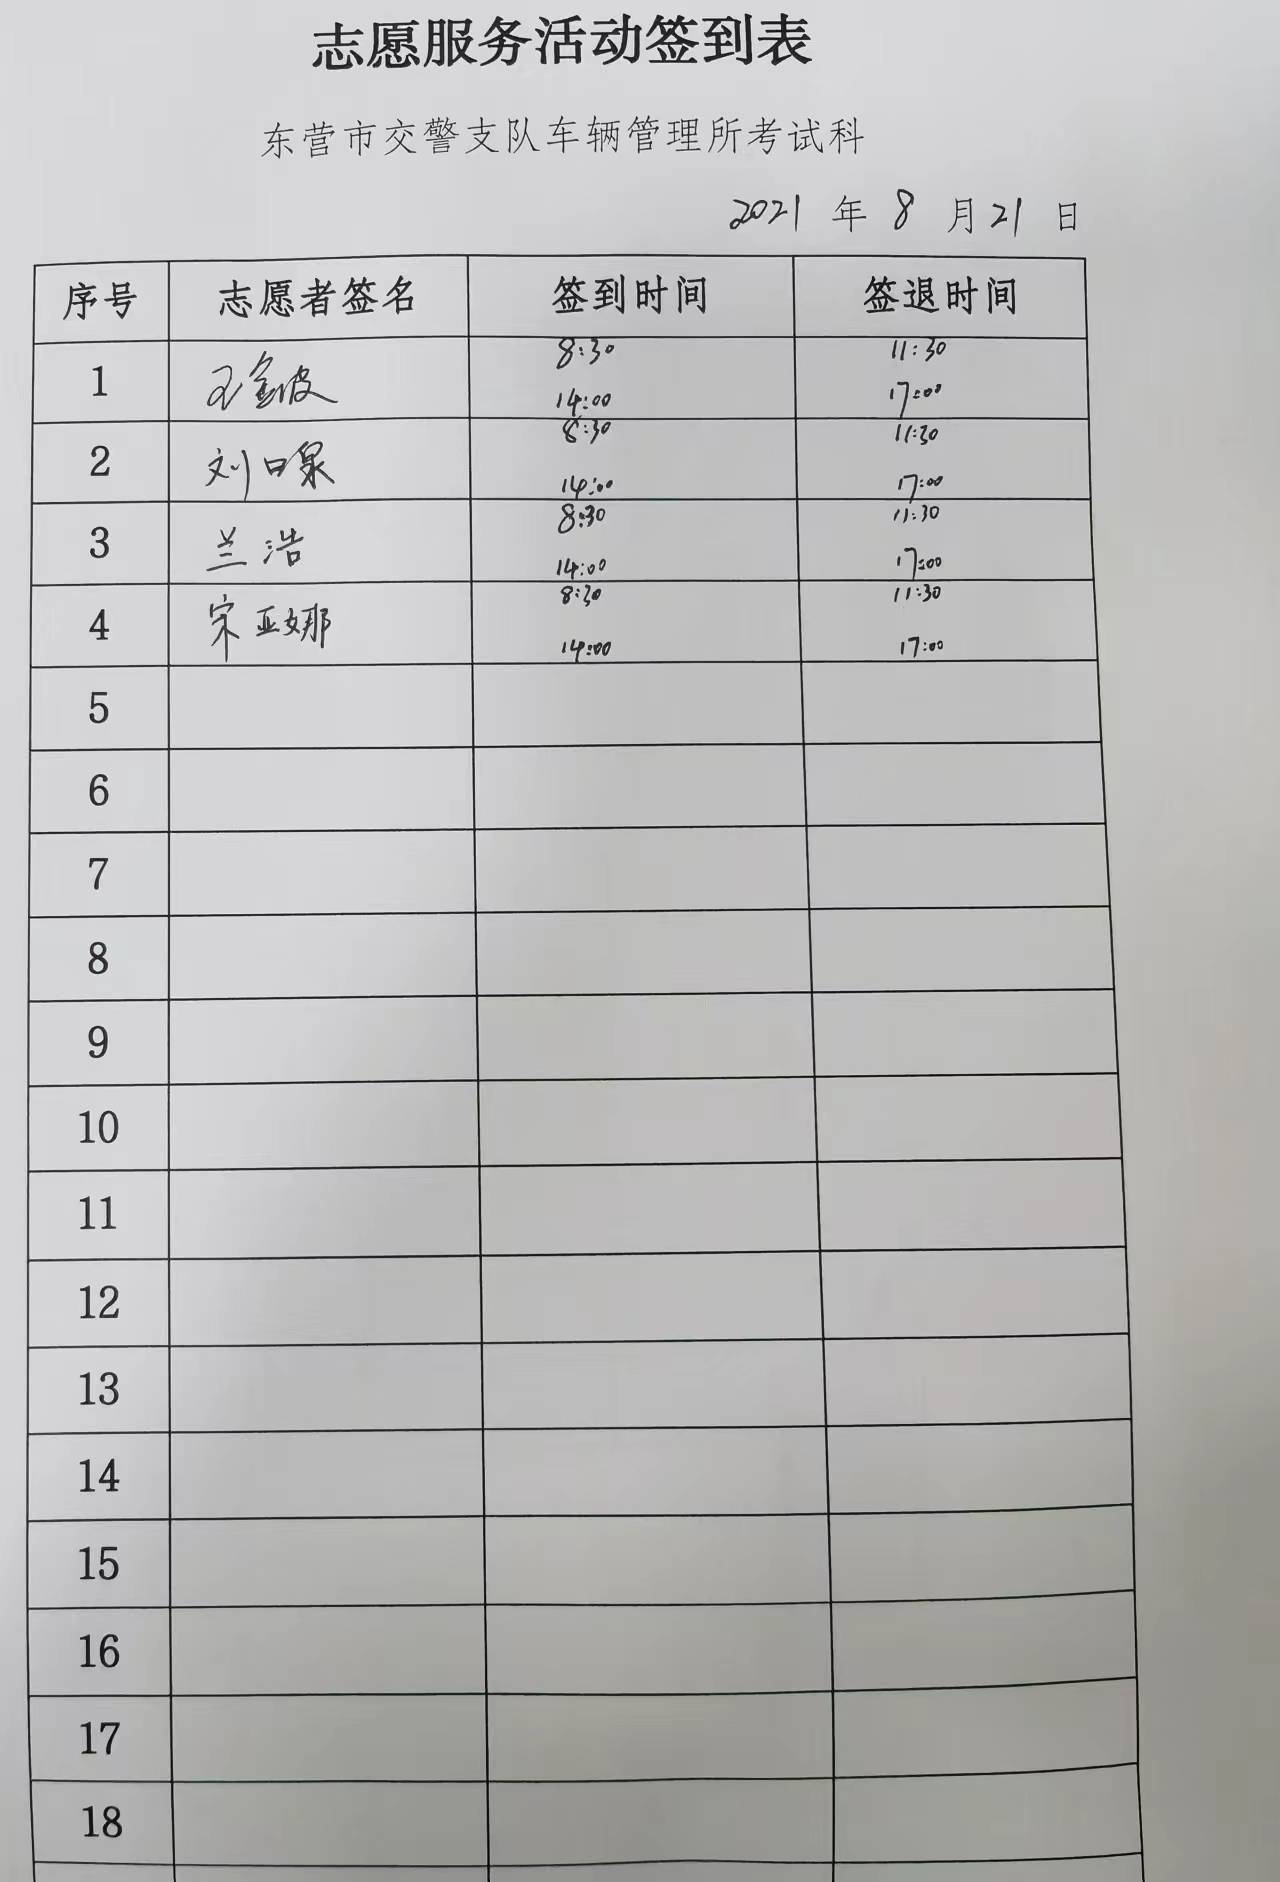 志愿服务活动签到表
东营市交警支队车辆管理所考试科
2021 年 8 月 21 日
序号 志愿者签名 签到时间 签退时间
8:30 11:30
1 王金波
14:00 17:00
8:30 11:30
2 刘
14:00 17:00
8:30 11:30
3 兰浩
14:00 17:00
8:30 11:30
4 宋亚娜
14:00 17:00
5
6
7
8
9
10
11
12
13
14
15
16
17
18